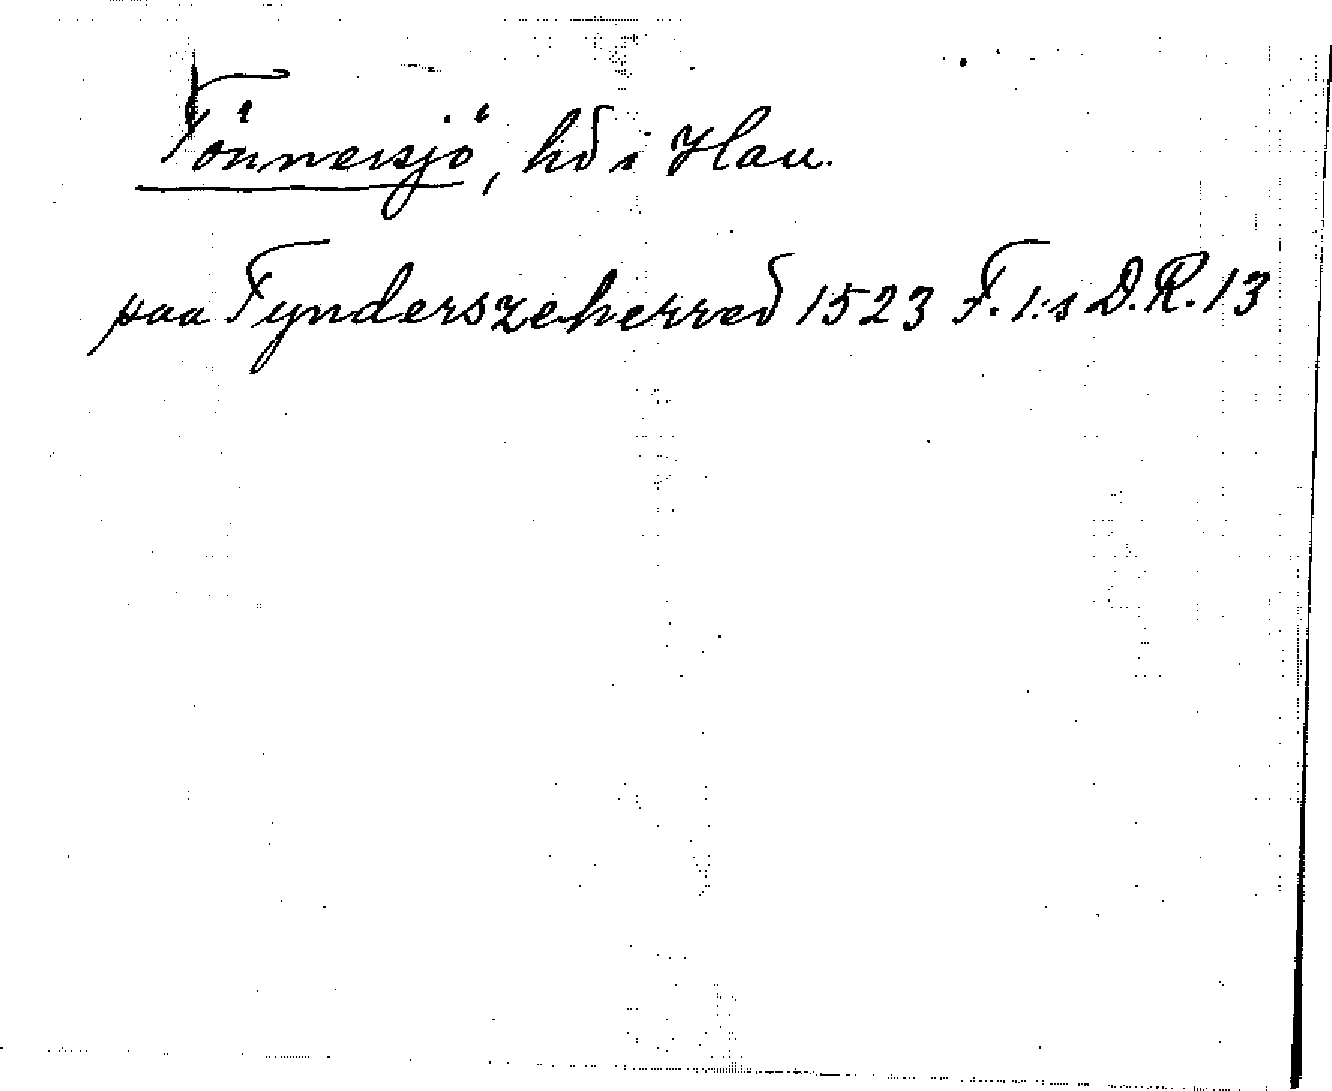 Tönnersjö, hd i Hall.
paa Tynderszeherred 1523 F. I:s D.R. 13